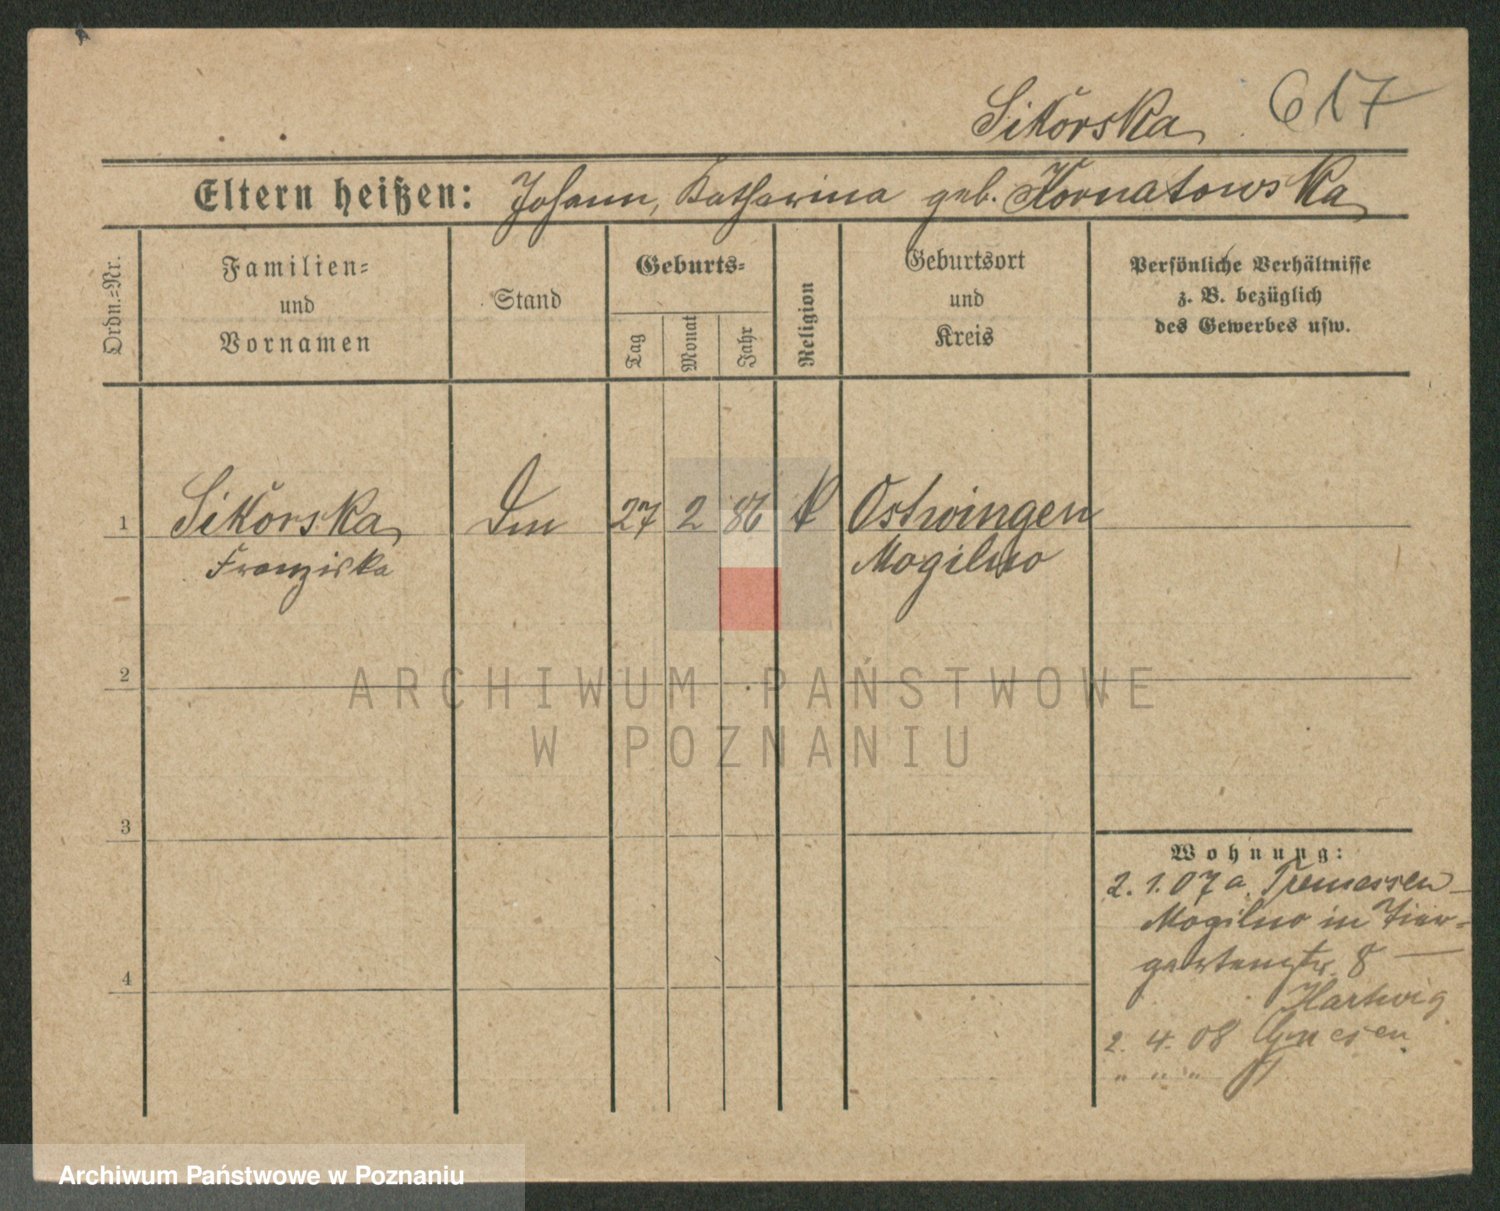 Sikorska 617
Eltern heißen: Johann, Katharina geb. Kornatowska
Ordn.=Nr.
Familien=
und
Vornamen
Stand
Geburts=
Tag
Monat
Jahr
Religion
Geburtsort
und
Kreis
Persönliche Verhältnisse
z. B. bezüglich
des Gewerbes usw.
1 Sikorska 27 2 86 k Ostwingen
Franziska Mogilno
2
3
4
Wohnung:
2. 1. 07 a. Tremessen
Mogilno in Tier-
gartenstr. 8 —
Hartwig
2. 4. 08 Gnesen
" " "
ARCHIWUM PAŃSTWOWE
W POZNANIU
Archiwum Państwowe w Poznaniu